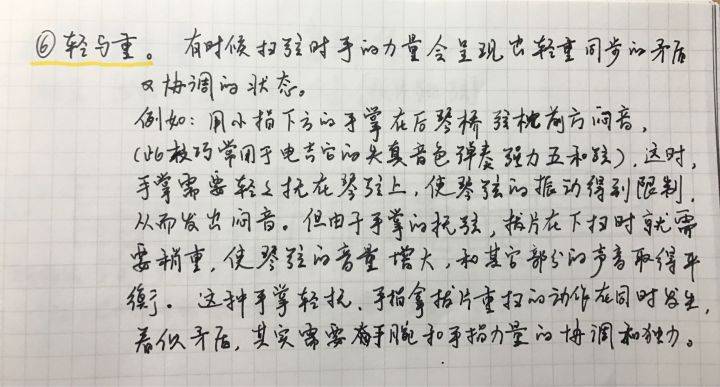 ⑥轻与重。有时候扫弦时手的力量会呈现出轻重同步的矛盾
又协调的状态。
例如：用小指下方的手掌在后琴桥弦枕前方闷音，
（此技巧常用于电吉它的失真音色弹奏强力五和弦），这时，
手掌需要轻轻抚在琴弦上，使琴弦的振动得到限制，
从而发出闷音。但由于手掌的抚弦，拨片在下扫时就需
要稍重，使琴弦的音量增大，和其它部分的声音取得平
衡。这种手掌轻抚、手指拿拨片重扫的动作在同时发生，
看似矛盾，其实需要有手腕和手指力量的协调和独力。